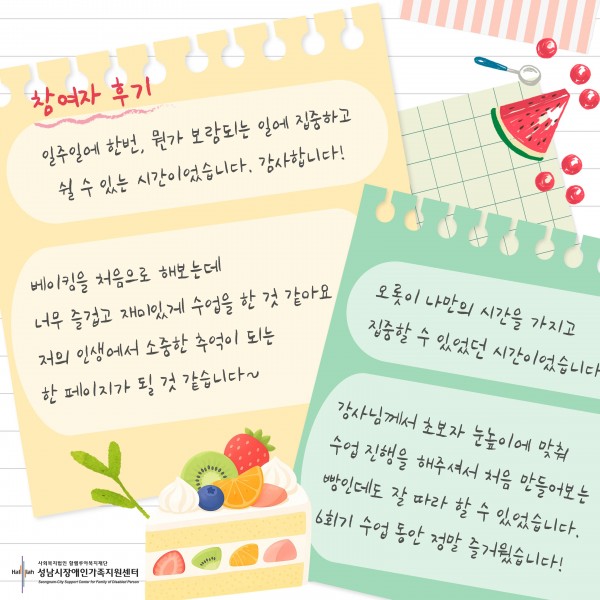 참여자 후기
일주일에 한번, 뭔가 보람되는 일에 집중하고
쉴 수 있는 시간이었습니다. 감사합니다!
베이킹을 처음으로 해보는데
너무 즐겁고 재미있게 수업을 한 것 같아요
저의 인생에서 소중한 추억이 되는
한 페이지가 될 것 같습니다~
오롯이 나만의 시간을 가지고
집중할 수 있었던 시간이었습니다
강사님께서 초보자 눈높이에 맞춰
수업 진행을 해주셔서 처음 만들어보는
빵인데도 잘 따라 할 수 있었습니다.
6회기 수업 동안 정말 즐거웠습니다!
사회복지법인 할렐루야복지재단
성남시장애인가족지원센터
Seongnam-City Support Center for Family of Disabled Person